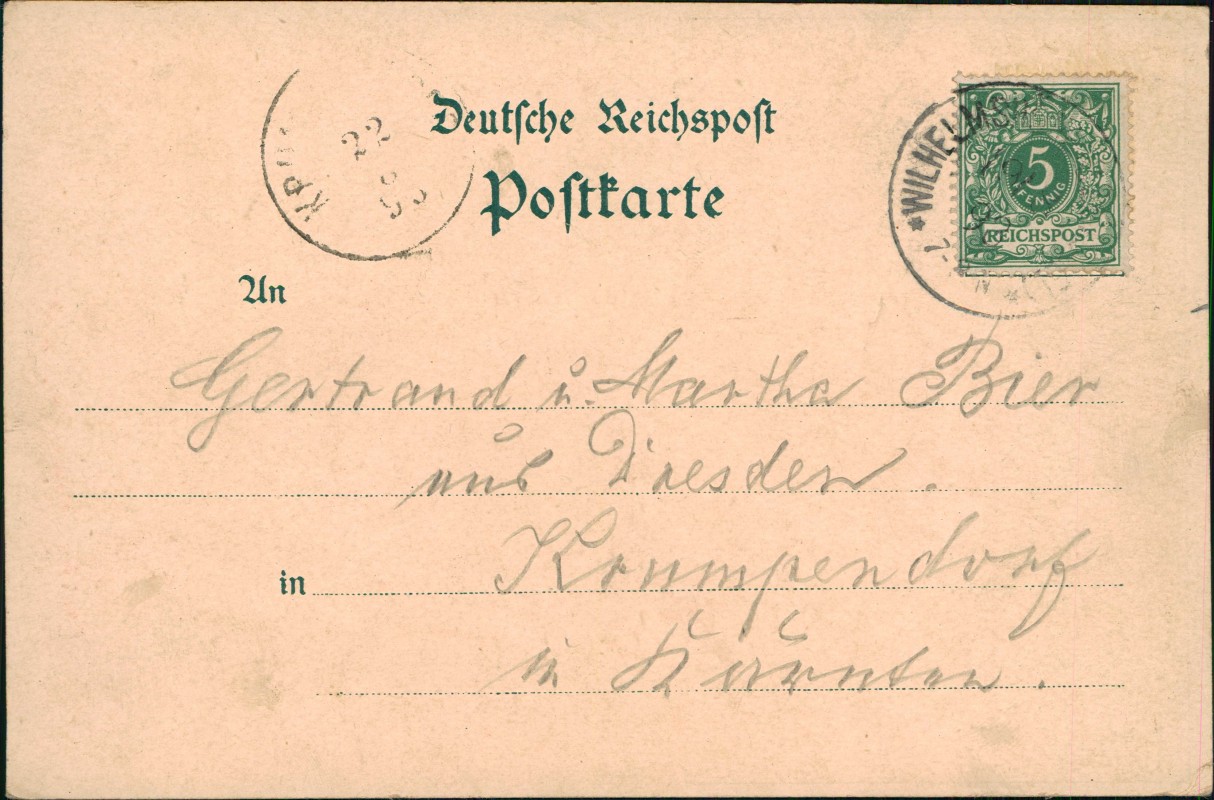 Deutsche Reichspost
Postkarte
22
*WILHELMSH
5
PFENNIG
REICHSPOST
An
Gertrand u. Martha Bier
aus Dresden.
in Krumpendorf
in Kärnten.